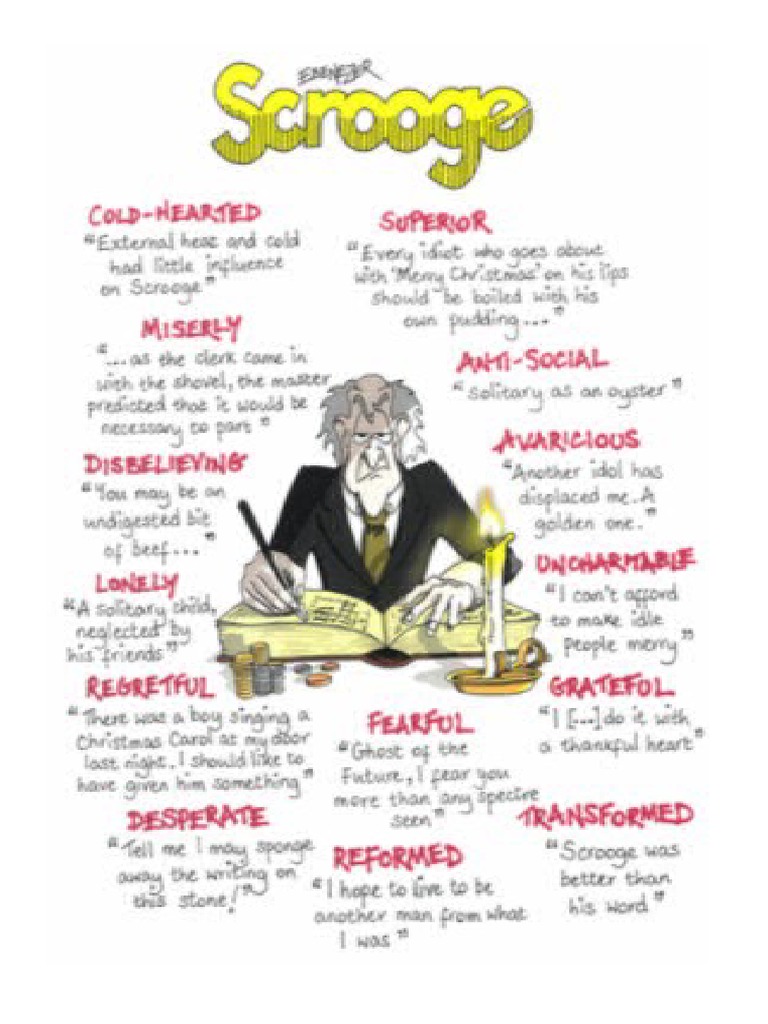 EBENEZER
Scrooge
COLD-HEARTED
"External heat and cold
had little influence
on Scrooge"
SUPERIOR
"Every idiot who goes about
with 'Merry Christmas' on his lips
should be boiled with his
own pudding..."
MISERLY
"...as the clerk came in
with the shovel, the master
predicted that it would be
necessary to part"
ANTI-SOCIAL
"Solitary as an oyster"
DISBELIEVING
"You may be an
undigested bit
of beef..."
AVARICIOUS
"Another idol has
displaced me. A
golden one."
LONELY
"A solitary child,
neglected by
his friends"
UNCHARITABLE
"I can't afford
to make idle
people merry"
REGRETFUL
"There was a boy singing a
Christmas Carol at my door
last night. I should like to
have given him something"
FEARFUL
"Ghost of the
Future, I fear you
more than any spectre
seen"
GRATEFUL
"I [...] do it with
a thankful heart"
DESPERATE
"Tell me I may sponge
away the writing on
this stone!"
REFORMED
"I hope to live to be
another man from what
I was"
TRANSFORMED
"Scrooge was
better than
his word"